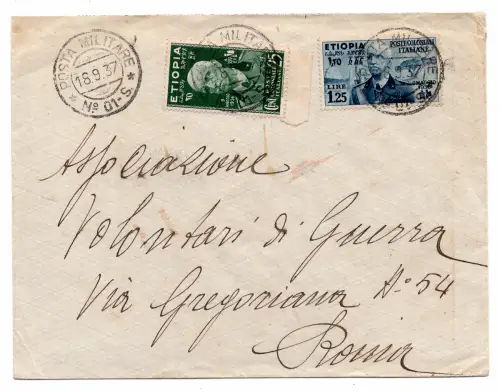 POSTA MILITARE
18.9.37
Nº 01-S.
ETIOPIA
25
ETIOPIA
POSTE COLONIALI
ITALIANE
LIRE
1.25
Associazione
Volontari di Guerra
Via Gregoriana Nº 54
Roma